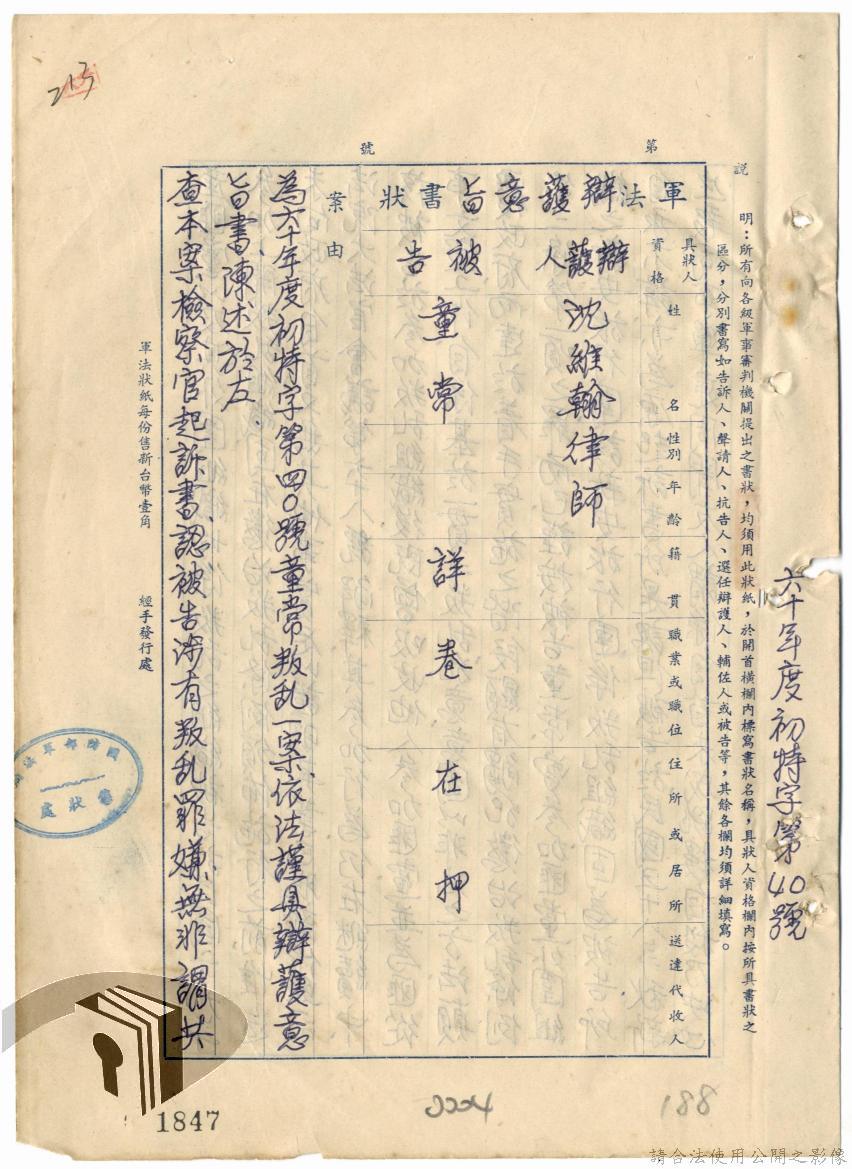 六十年度初特字第40號
說明：所有向各級軍事審判機關提出之書狀，均須用此狀紙，於開首橫欄內標寫書狀名稱，具狀人資格欄內按所具書狀之
區分，分別書寫如告訴人、聲請人、抗告人、選任辯護人、輔佐人或被告等，其餘各欄均須詳細填寫。
第
號
軍法辯護意旨書狀
具狀人
資格
姓名
性別
年齡
籍貫
職業或職位
住所或居所
送達代收人
辯護人
沈維翰律師
被告
童常
詳卷
在押
案由
為六十年度初特字第四〇號童常叛乱一案依法謹具辯護意
旨書陳述於左
查本案檢察官起訴書認被告涉有叛乱罪嫌無非謂共
軍法狀紙每份售新台幣壹角
經手發行處
213
國防部軍法
售狀處
1847
188
請合法使用公開之影像